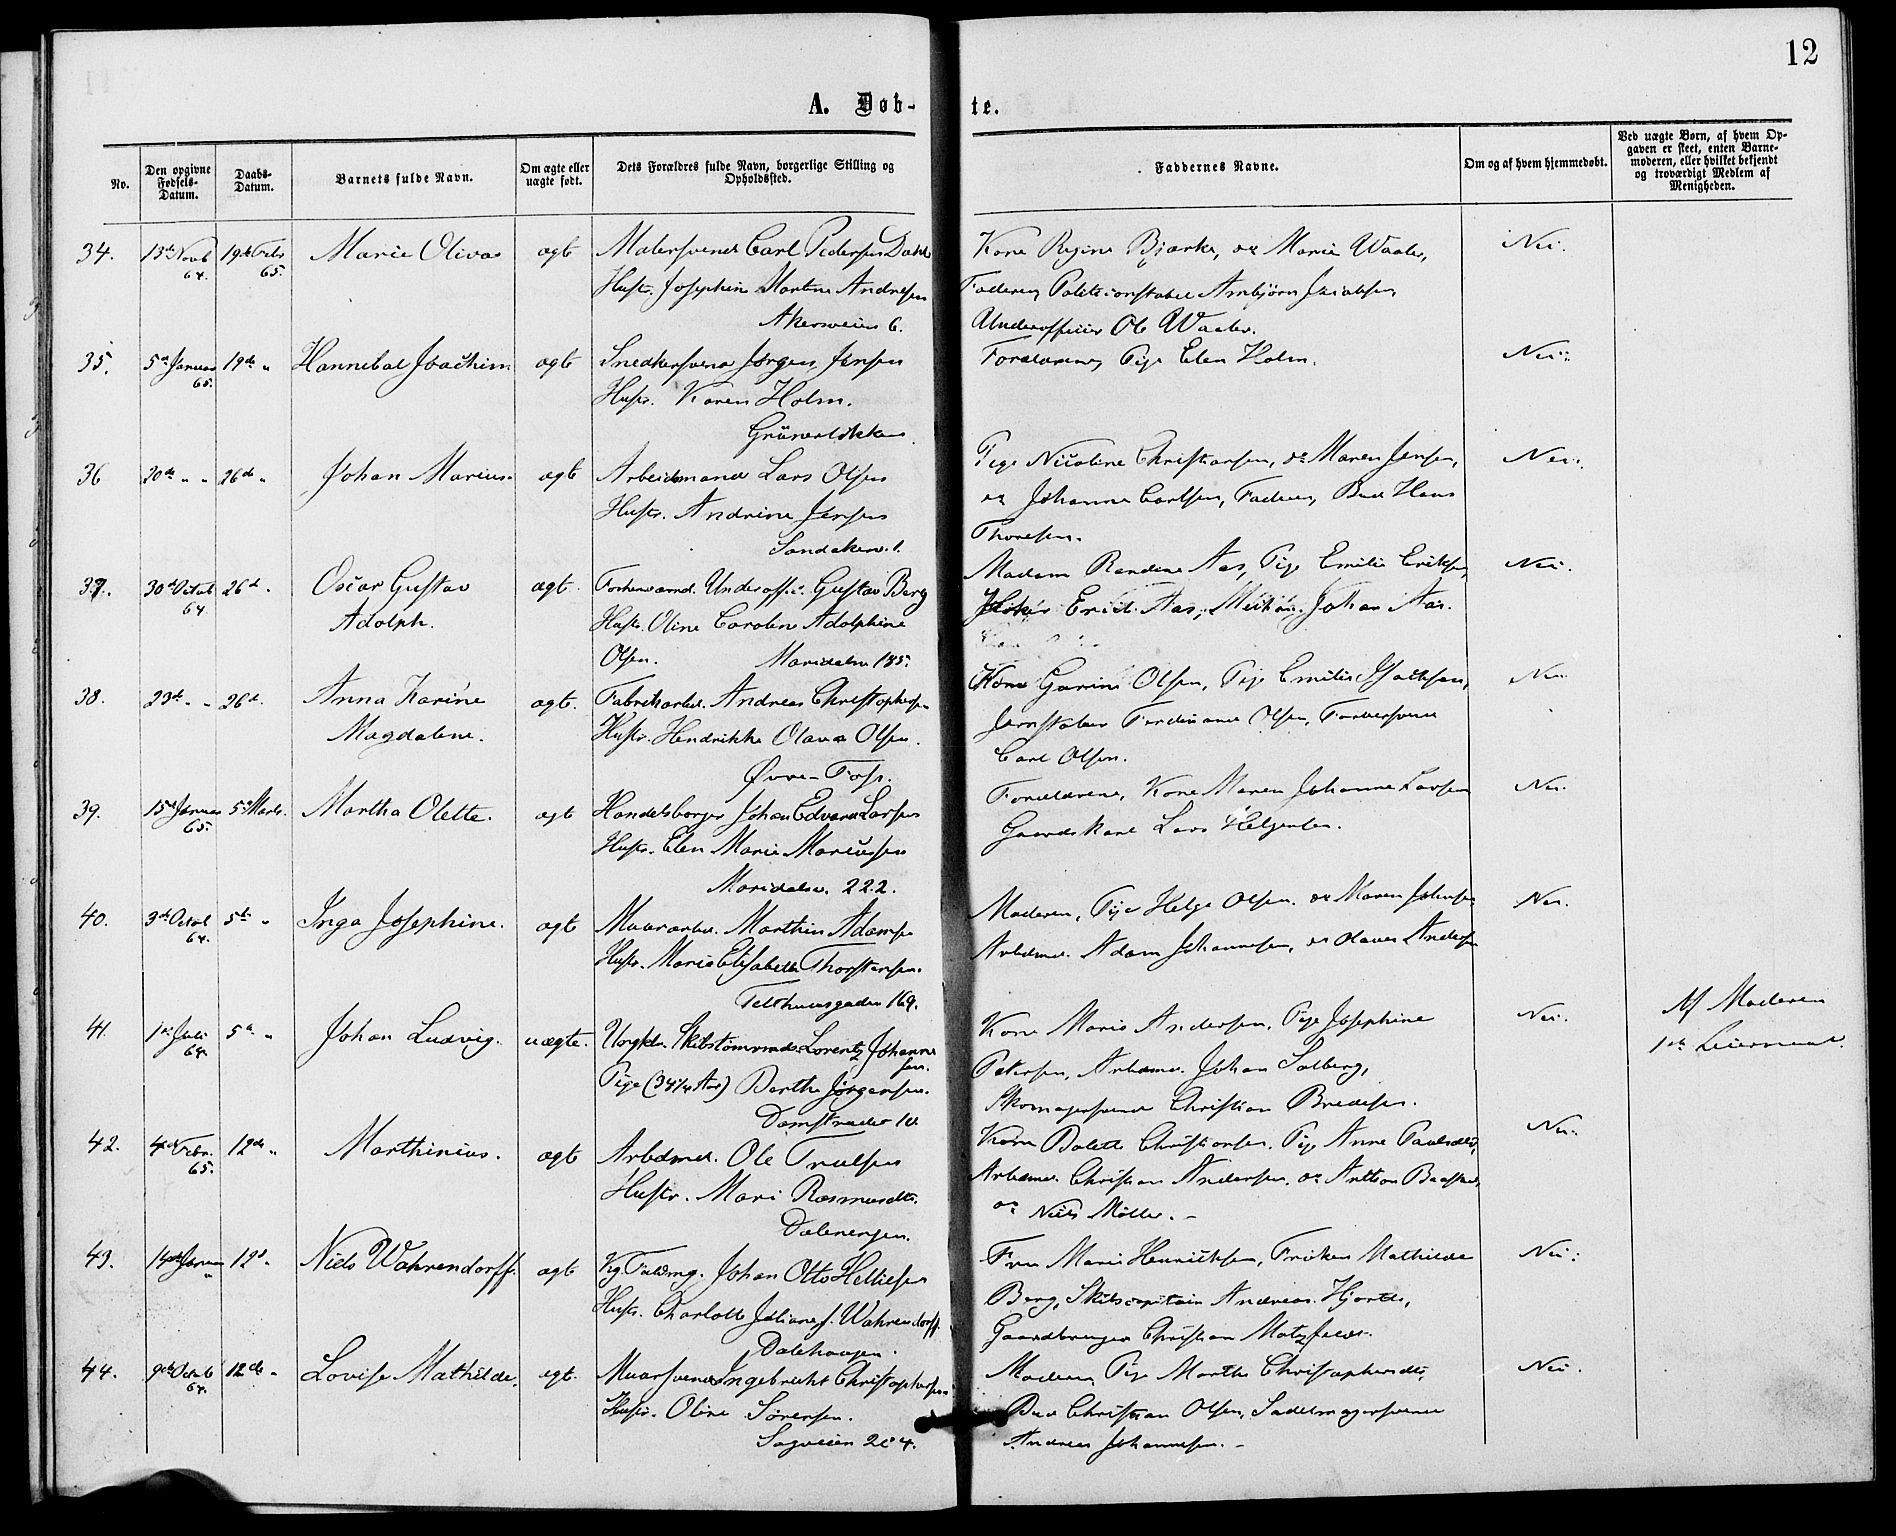 12
A. Døb-
te.
No.
Den opgivne Fødsels-Datum.
Daabs-Datum.
Barnets fulde Navn.
Om ægte eller uægte født.
Dets Forældres fulde Navn, borgerlige Stilling og Opholdssted.
Faddernes Navne.
Om og af hvem hjemmedøbt.
Ved uægte Børn, af hvem Op-
gaven er skeet, enten Barne-
moderen, eller hvilket bekjendt
og troværdigt Medlem af
Menigheden.
34. 13de Novb 64. 19de Feb 65. Marie Oliva ægt Malersvend Carl Pedersen Dahl
Hustr. Josephine Martine Andresen
Akersveien 6.
Kone Regine Bjærke, do Marie Waaler,
Faderen, Politiconstabel Arnbjørn Jacobsen,
Underofficier Ole Waaler.
Nei.
35. 5te Januar 65. 19de " Hannibal Joachim ægt Snedkersvend Jørgen Jensen
Hustr. Karen Holm.
Grünerløkken.
Forældrene, Pige Elen Holm.
Nei.
36 20de " " 26de " Johan Marius. ægt Arbeidsmand Lars Olsen
Hustr. Andrine Jensen
Sandakerv. 1.
Pige Nicoline Christiansen, do Maren Jensen,
do Johanne Carlsen, Faderen, Bud Hans
Thoresen.
Nei.
37. 30de Octob 64. 26d " Oscar Gustav
Adolph.
ægt. Forhenværnd. Underoffic. Gustav Berg
Hustr. Oline Caroline Adolphine
Olsen. Maridalsv 185.
Madam Randine Aas, Pige Emilie Eriksen,
Erick Aas, Johan Aas.
Nei.
38. 23de " " 26d. Anna Karine
Magdalene.
ægt. Fabrikarbei. Andreas Christophersen
Hustr. Hendrikke Olava Olsen.
Øvre-Foss.
Kone Gurine Olsen, Pige Emilie Isacksen,
Jernstøber Ferdinand Olsen, Farversvend
Carl Olsen.
Nei.
39. 15de Januar 65. 5te Marts. Martha Olette. ægt Handelsborger Johan Edvard Larsen
Hustr. Elen Marie Marcussen
Maridalsv. 222.
Forældrene, Kone Maren Johanne Larsen
Gaardskarl Lars Helgesen.
Nei.
40. 3de Octob 64. 5te " Inga Josephine. ægt Muurarbei. Marthin Adamsen
Hustr. Marie Elisabeth Thorstensen.
Telthuusgaden 169.
Moderen, Pige Helge Olsen. do Maren Johnsen
Arbdmd. Adam Johannesen, do Olaus Andersen
Nei.
41. 1ste Juli 64. 5te " Johan Ludvig. uægte. Ungkl. Skibstømmd. Lorentz Johanne
sen.
Pige (34¼ Aar) Berthe Jørgensen.
Damstrædet 10
Kone Marie Andersen, Pige Josephine
Petersen, Arbdmd. Johan Solberg,
Skomagersvend Christian Bredesen.
Nei.
Af Moderen
1ste Leiermaal.
42. 4de Febr. 65. 12de " Marthinius. ægt Arbdmd. Ole Trulsen
Hustr. Mari Rasmusdtr.
Dælenengen.
Kone Bolette Christiansen. Pige Anne Paulsdtr,
Arbdmd. Christian Andersen. do Anthon
do Niels Møller. -
Nei.
43. 14de Januar " 12d " Niels Wahrendorff. ægt Johan Otto Helliesen
Hustr. Charlotte Juliane f. Wahrendorff.
Dælehaugen.
Fru Marie Henricksen, Frøken Mathilde
Berg, Skibscapitain Andreas Hjorth,
Gaardbruger Christian Matzfeldt.
Nei.
44. 9de Octob 64. 12de " Lovise Mathilde. ægt. Muursvend Ingebricht Christophersen
Hustr. Oline Sørensen.
Sagveien 204.
Moderen, Pige Marthe Christophersdtr.
Bud Christian Olsen, Sadelmagersvend
Andreas Johannesen. -
Nei.